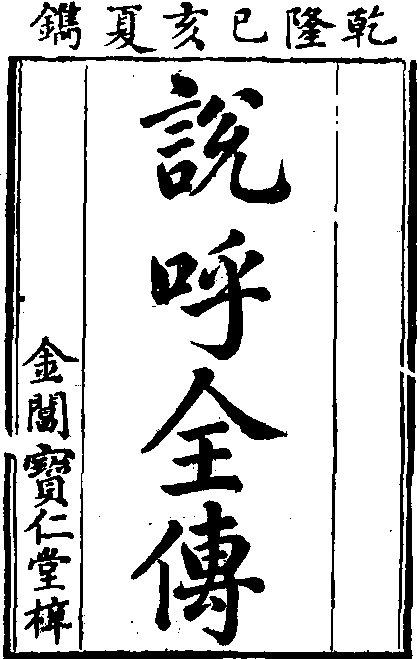 乾隆己亥夏鐫
說呼全傳
金閶寶仁堂梓